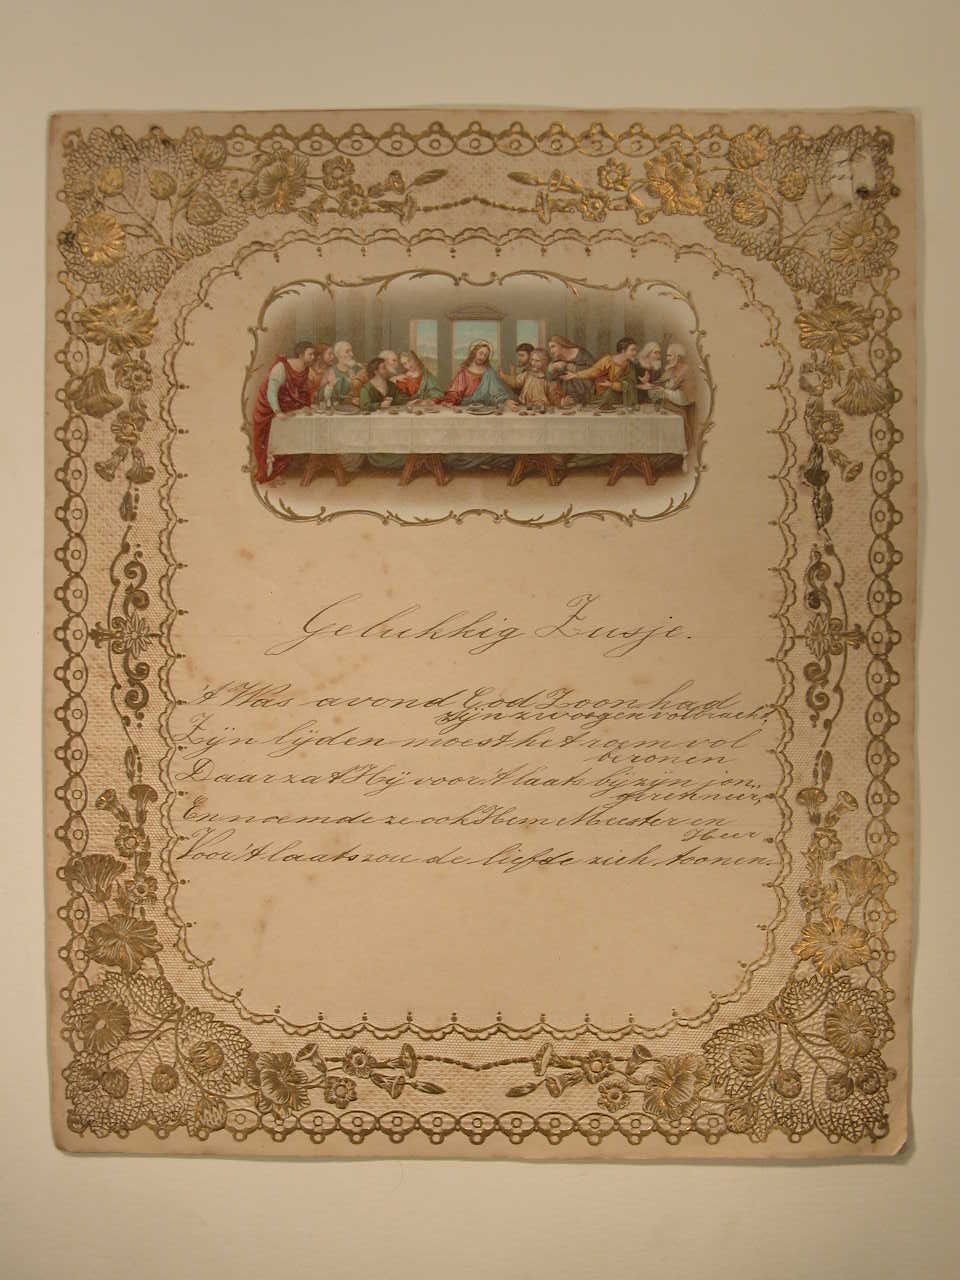 Gelukkig Zusje.
't Was avond God Zoon had
zijn zwoegen volbracht,
Zijn lijden moest het roem vol
beronen
Daar zat Hij voor 't laatst bij zijn jon„
geren neer,
En noemde ze ook Hem Meester en
Heer
Voor 't laatst zou de liefde zich toonen.